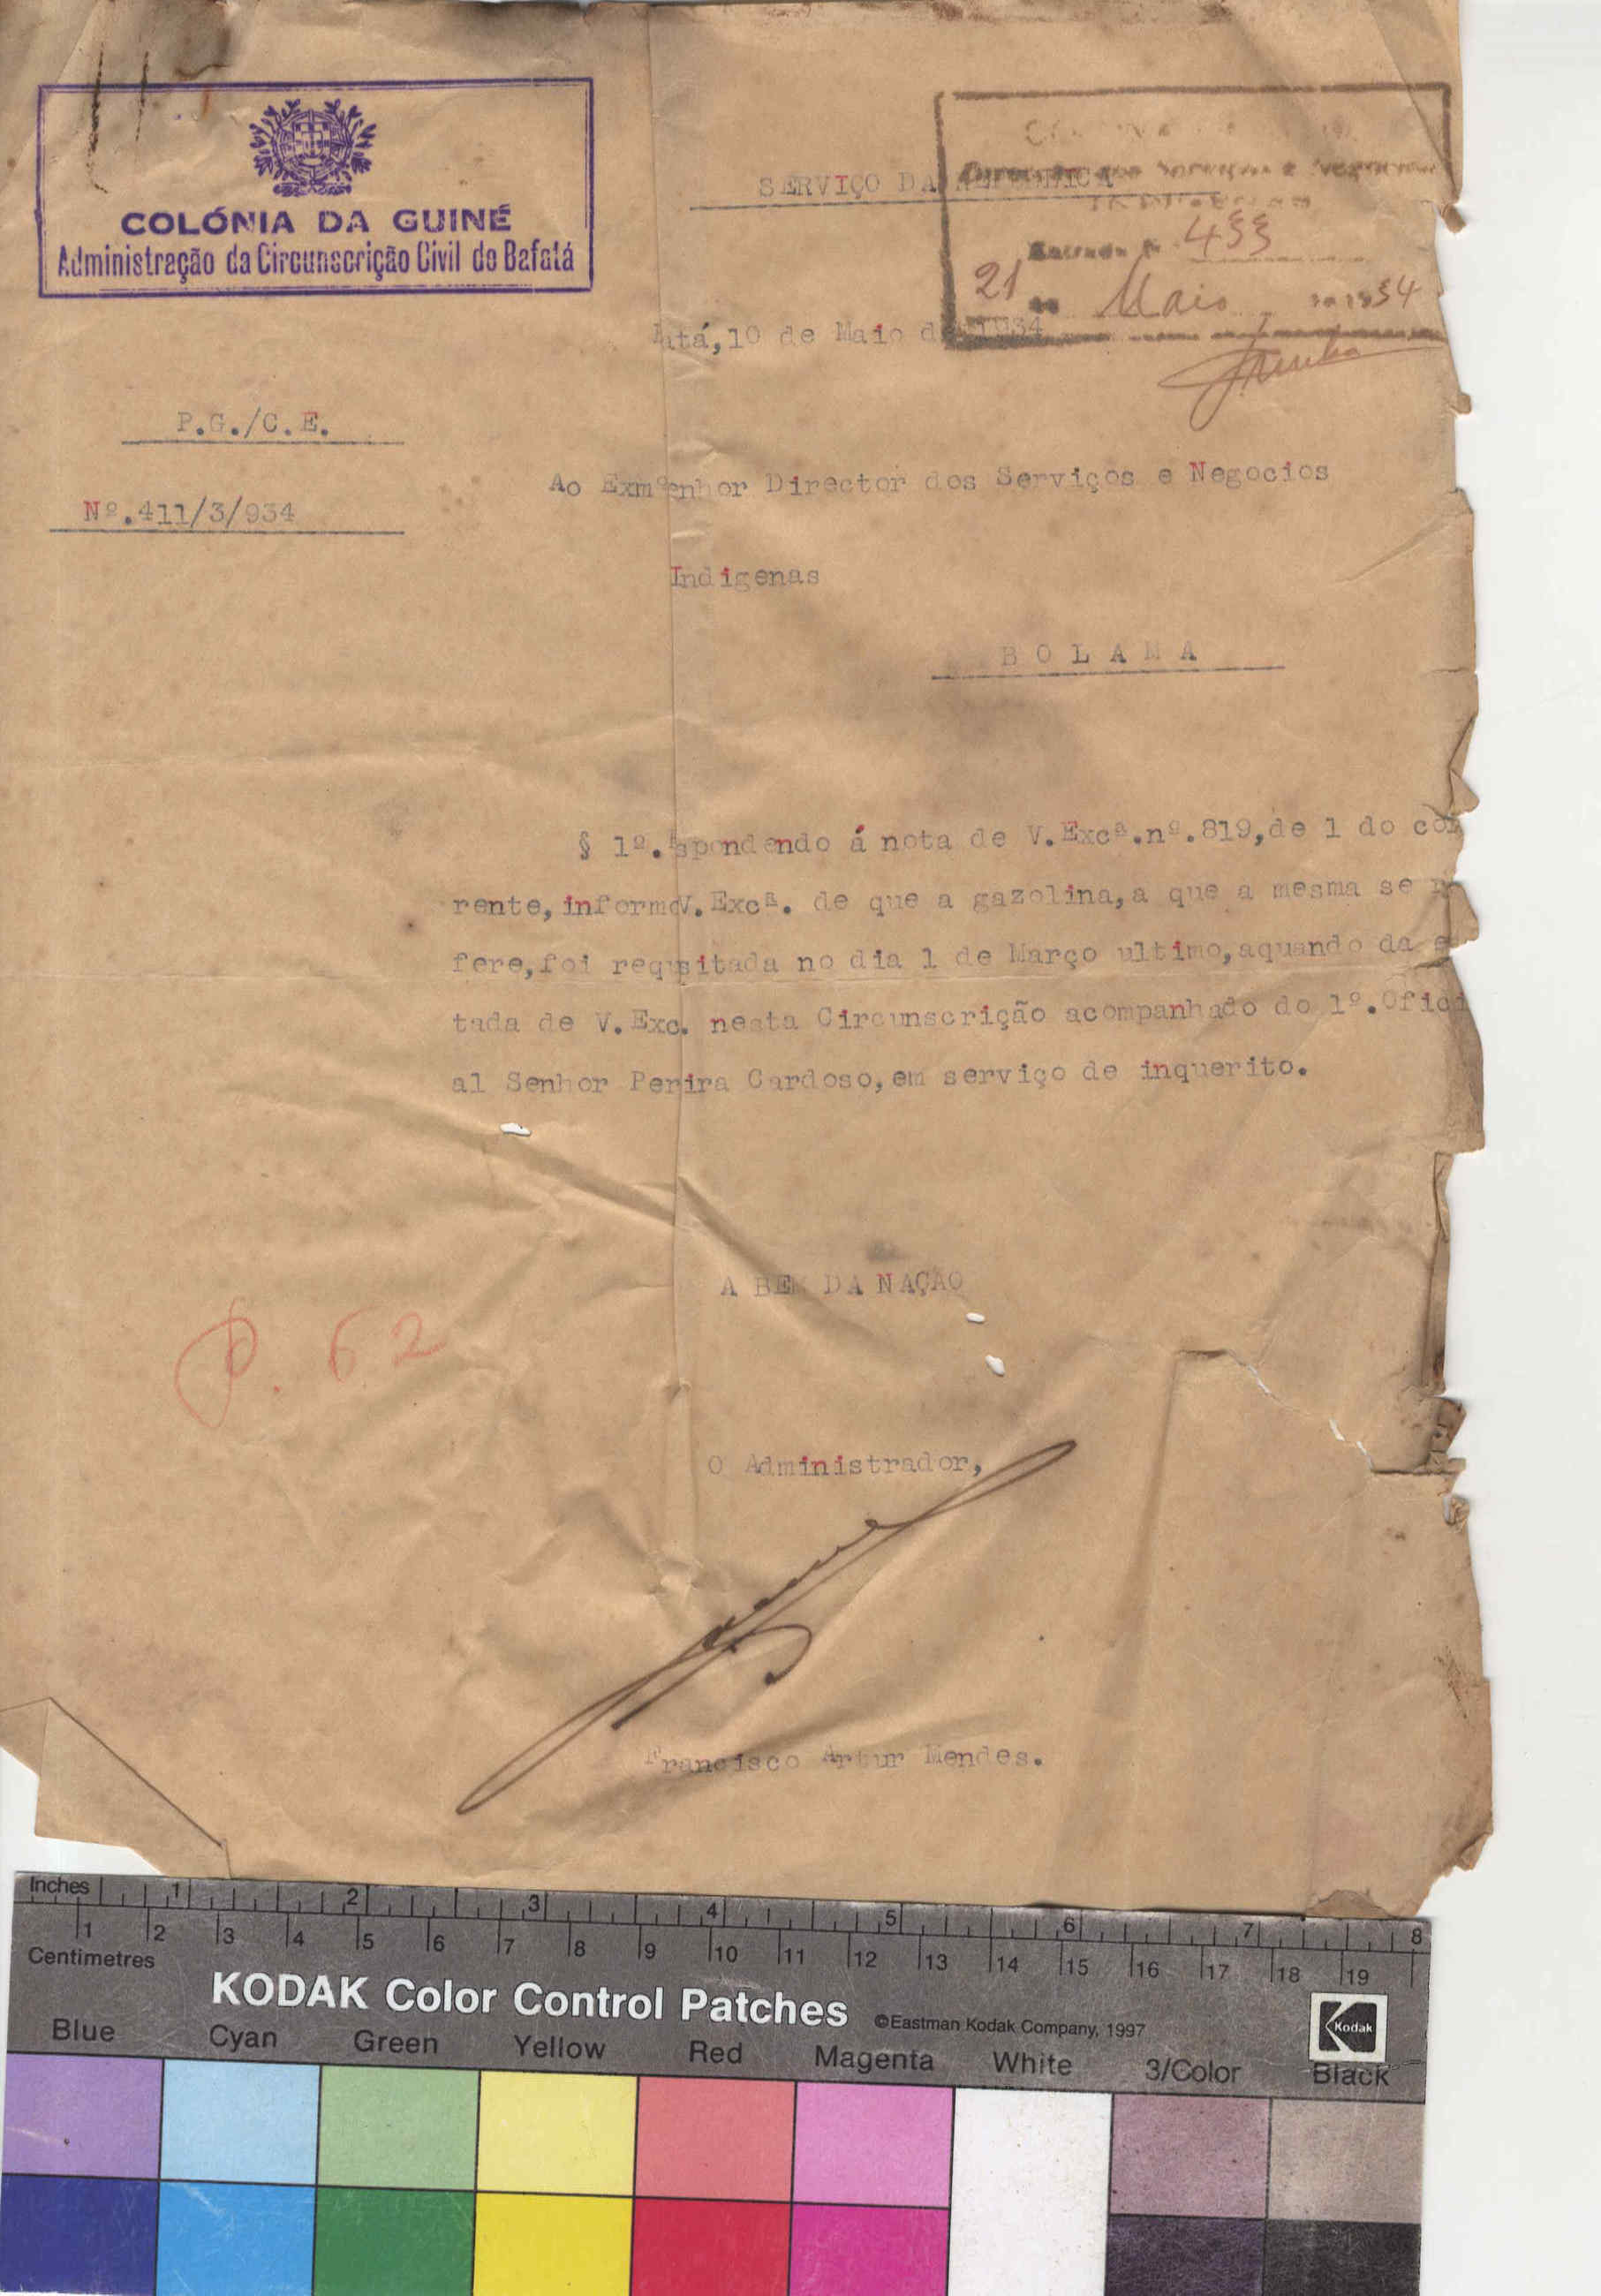 COLÓNIA DA GUINÉ
Administração da Circunscrição Civil de Bafatá
SERVIÇO DA REPUBLICA
Direcção dos Serviços e Negocios
Entrada Nº 433
21 de Maio de 1934
atá, 10 de Maio de 1934
P.G./C.E.
Nº.411/3/934
Ao Exmº enhor Director dos Serviços e Negocios
Indigenas
BOLAMA
§ 1º. spondendo á nota de V.Excª.nº.819,de 1 do cor
rente,informo V.Excª. de que a gazolina,a que a mesma se r
fere,foi requsitada no dia 1 de Março ultimo,aquando da e
tada de V.Exc. nesta Circunscrição acompanhado do 1º.Ofici
al Senhor Perira Cardoso,em serviço de inquerito.
A BEM DA NAÇÃO
P. 62
O Administrador,
Francisco Artur Mendes.
Inches 1 2 3 4 5 6 7 8
1 2 3 4 5 6 7 8 9 10 11 12 13 14 15 16 17 18 19
Centimetres
KODAK Color Control Patches ©Eastman Kodak Company, 1997 Kodak
Blue Cyan Green Yellow Red Magenta White 3/Color Black